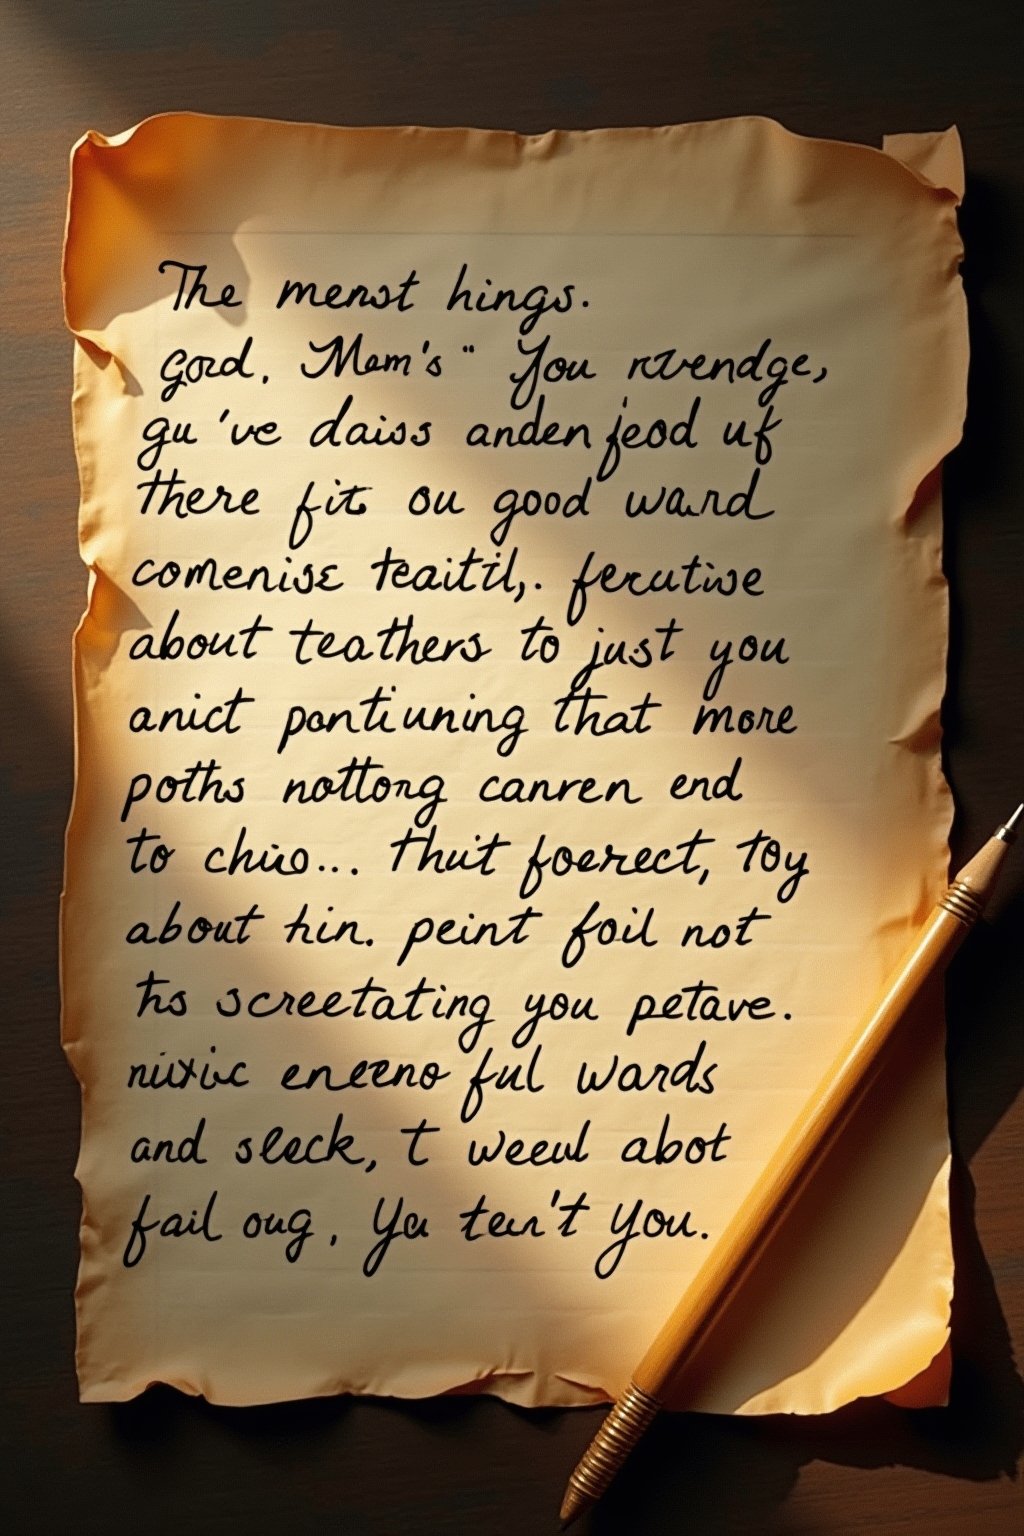 The menst hings.
Gord. Mem's " You rvendge,
gu 've daiss anden jeod uf
there fit ou good wand
comenise teaitil,. fecutise
about teathers to just you
anict pontiuning that more
poths nottong canren end
to chiio... thuit foerect, toy
about hin. peint foil not
ths screetating you petave.
niixic eneeno ful wards
and sleck, t weeul abot
fail oug, Ya ten't You.